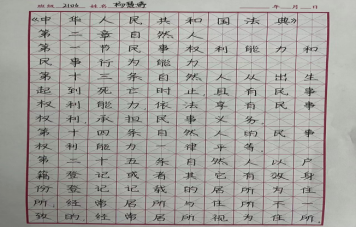 班级 2106 姓名 年 月 日
《中华人民共和国法典》
第二章自然人
第一节民事权利能力和
民事行为能力
第十三条自然人从出生
起到死亡时止,具有民事
权利能力,依法享有民事
权利,承担民事义务。
第十四条自然人的民事
权利能力一律平等。
第二十五条自然人以户
籍登记或者其它有效身
份登记记载的居所为住
所,经常居所与住所不一
致的,经常居所视为住所。